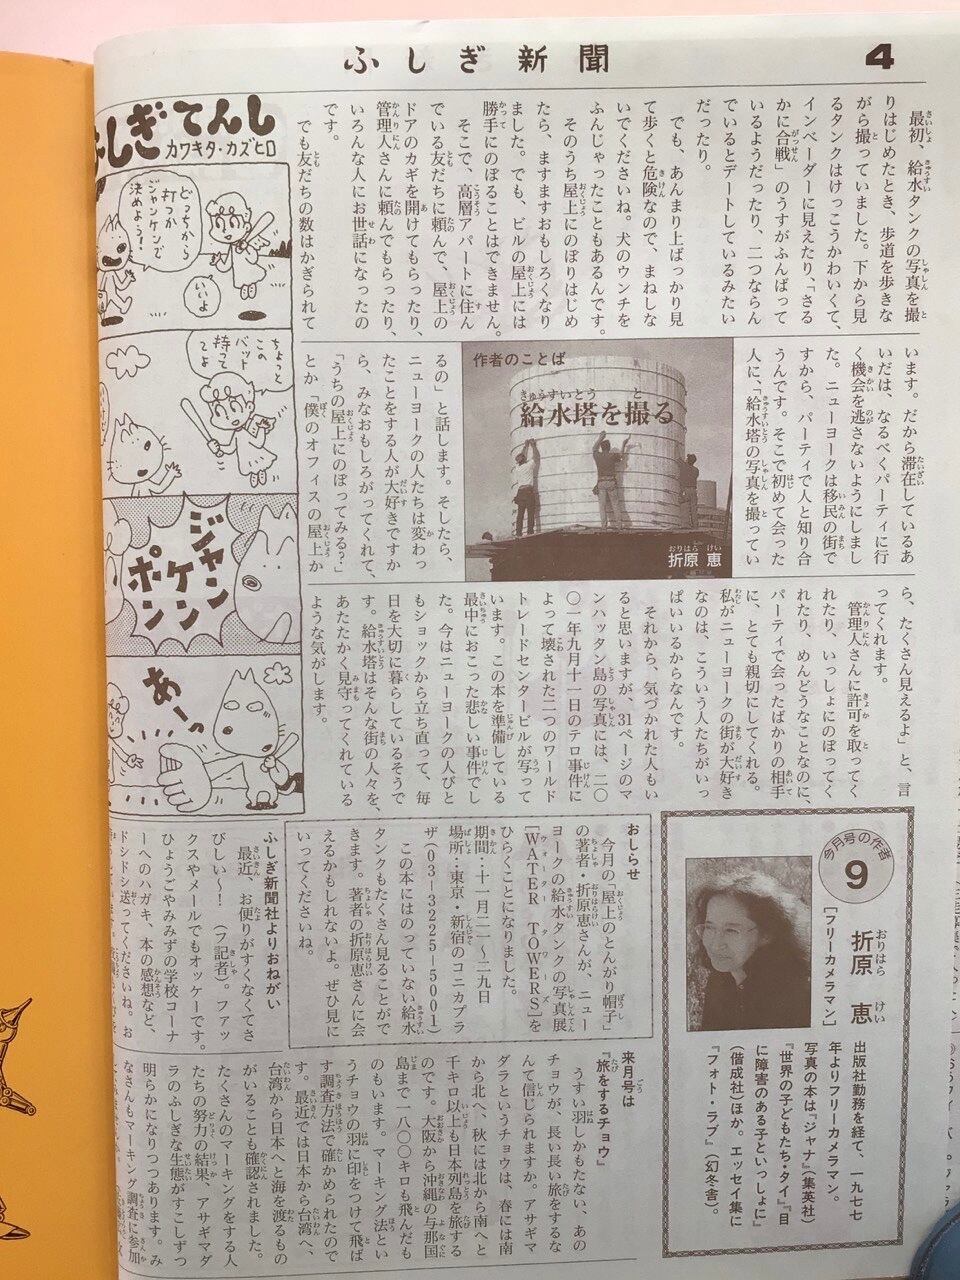 ふしぎ新聞
4
最初、給水タンクの写真を撮
りはじめたとき、歩道を歩きな
がら撮っていました。下から見
るタンクはけっこうかわいくて、
インベーダーに見えたり、「さる
かに合戦」のうすがふんばって
いるようだったり、二つならん
でいるとデートしているみたい
だったり。
でも、あんまり上ばっかり見
て歩くと危険なので、まねしな
いでくださいね。犬のウンチを
ふんじゃったこともあるんです。
そのうち屋上にのぼりはじめ
たら、ますますおもしろくなり
ました。でも、ビルの屋上には
勝手にのぼることはできません。
そこで、高層アパートに住ん
でいる友だちに頼んで、屋上の
ドアのカギを開けてもらったり、
管理人さんに頼んでもらったり、
いろんな人にお世話になったの
です。
でも友だちの数はかぎられて
います。だから滞在しているあ
いだは、なるべくパーティに行
く機会を逃さないようにしまし
た。ニューヨークは移民の街で
すから、パーティで人と知り合
うんです。そこで初めて会った
人に、「給水塔の写真を撮ってい
作者のことば
給水塔を撮る
折原 恵
るの」と話します。そしたら、
ニューヨークの人たちは変わっ
たことをする人が大好きですか
ら、みなおもしろがってくれて、
「うちの屋上にのぼってみる?」
とか「僕のオフィスの屋上か
ら、たくさん見えるよ」と、言
ってくれます。
管理人さんに許可を取ってく
れたり、いっしょにのぼってく
れたり、めんどうなことなのに、
パーティで会ったばかりの相手
に、とても親切にしてくれる。
私がニューヨークの街が大好き
なのは、こういう人たちがいっ
ぱいいるからなんです。
それから、気づかれた人もい
ると思いますが、31ページのマ
ンハッタン島の写真には、二〇
〇一年九月十一日のテロ事件に
よって壊された二つのワールド
トレードセンタービルが写って
います。この本を準備している
最中におこった悲しい事件でし
た。今はニューヨークの人びと
もショックから立ち直って、毎
日を大切に暮らしているそうで
す。給水塔はそんな街の人々を、
あたたかく見守ってくれている
ような気がします。
今月号の作者
9
折原 恵
[フリーカメラマン]
出版社勤務を経て、一九七七
年よりフリーカメラマン。
写真の本は『ジャナ』(集英社)
『世界の子どもたち・タイ』『目
に障害のある子といっしょに』
(偕成社)ほか。エッセイ集に
『フォト・ラブ』(幻冬舎)。
おしらせ
今月の「屋上のとんがり帽子」
の著者・折原恵さんが、ニュー
ヨークの給水タンクの写真展
[WATER TOWERS]を
ひらくことになりました。
期間:十一月二一~二九日
場所:東京・新宿のコニカプラ
ザ(03-3225-5001)
この本にはのっていない給水
タンクもたくさん見ることがで
きます。著者の折原恵さんに会
えるかもしれないよ。ぜひ見に
いってくださいね。
ふしぎ新聞社よりおねがい
最近、お便りがすくなくてさ
びしい~!(フ記者)。ファッ
クスやメールでもオッケーです。
ひょうごやみみずの学校コーナ
ーへのハガキ、本の感想など、
ドシドシ送ってくださいね。お
来月号は
『旅をするチョウ』
うすい羽しかもたない、あの
チョウが、長い長い旅をするな
んて信じられますか。アサギマ
ダラというチョウは、春には南
から北へ、秋には北から南へと
千キロ以上も日本列島を旅する
のです。大阪から沖縄の与那国
島まで一八〇〇キロも飛んだも
のもいます。マーキング法とい
うチョウの羽に印をつけて飛ば
す調査方法で確かめられたので
す。最近では日本から台湾へ、
台湾から日本へと海を渡るもの
がいることも確認されました。
たくさんのマーキングをする人
たちの努力の結果、アサギマダ
ラのふしぎな生態がすこしずつ
明らかになりつつあります。み
なさんもマーキング調査に参加
ふしぎてんし
カワキタ・カズヒロ
どっちから
打つか
ジャンケンで
決めよう!
いいよ
ちょっと
この
バット
持ってて
よ
ジャン
ケン
ポン
あーっ